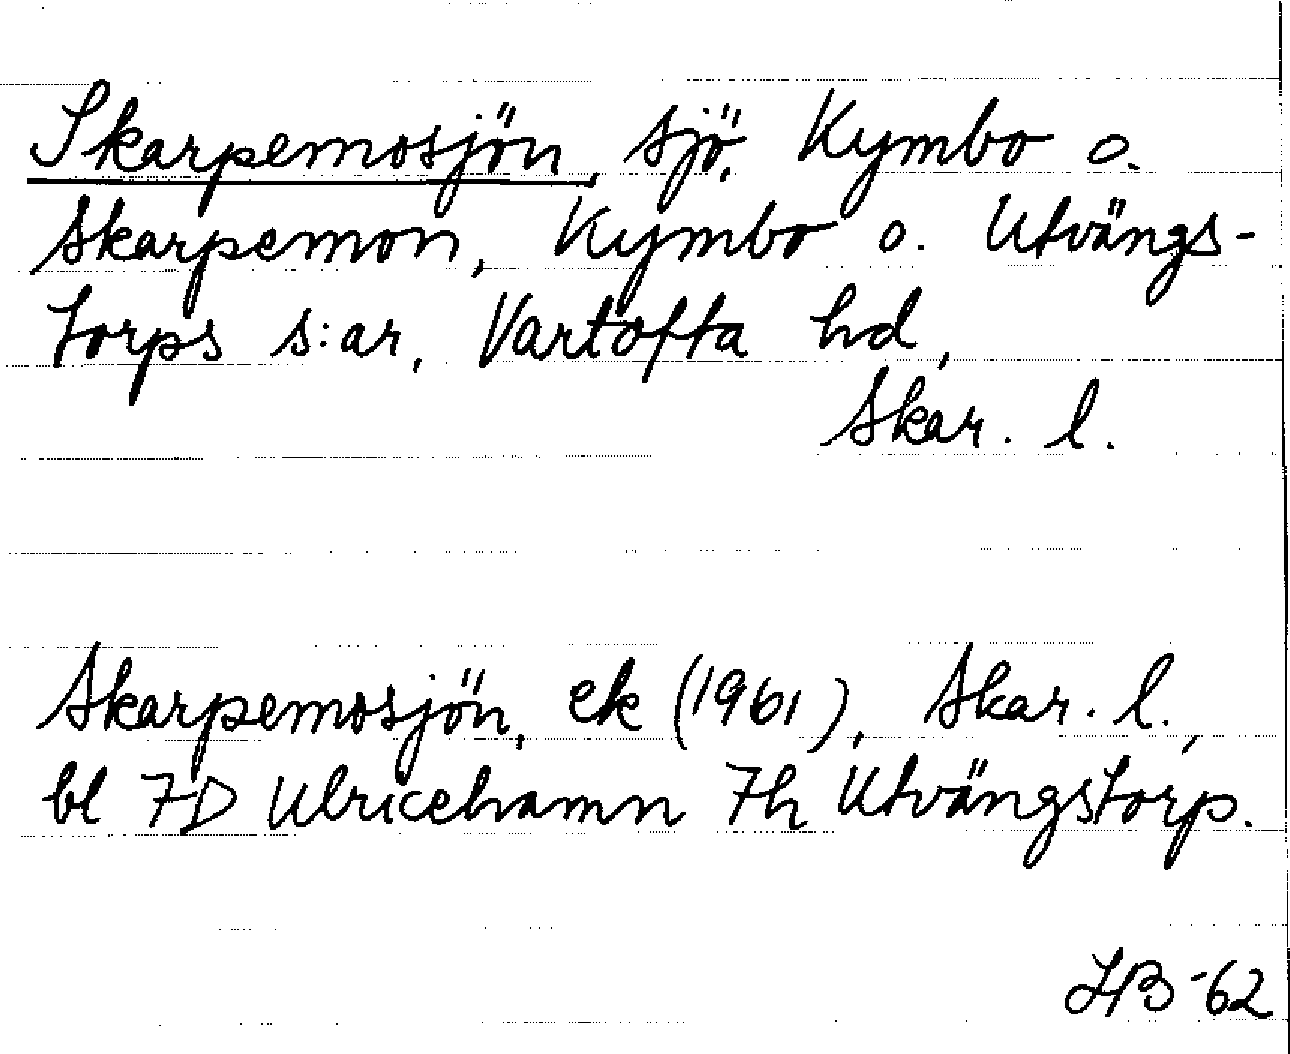 Skarpemosjön, sjö, Kymbo o.
Skarpemon, Kymbo o. Utvängs-
torps s:ar, Vartofta hd,
Skar. l.
Skarpemosjön, ek (1961), Skar. l.,
bl 7D Ulricehamn 7h Utvängstorp.
-62